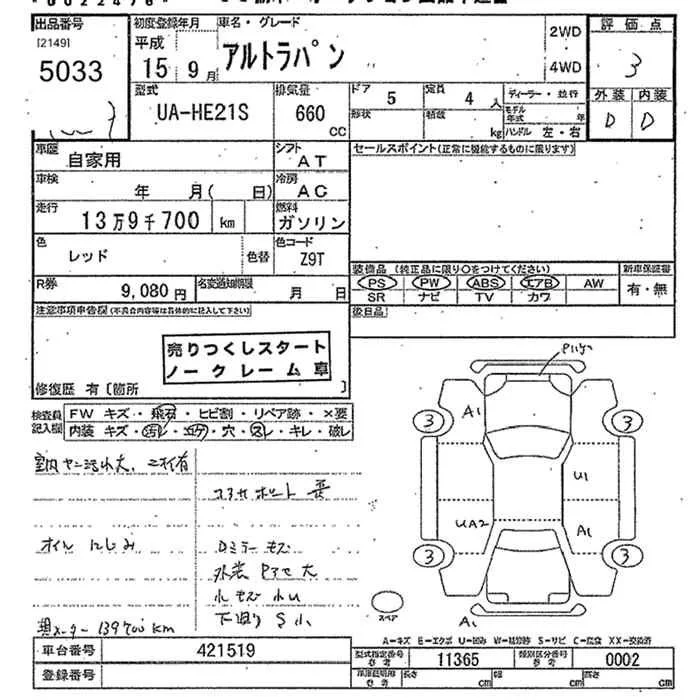 出品番号
[2149]
5033
初度登録年月
平成
15年 9月
車名・グレード
アルトラパン
2WD
4WD
評価点
3
外装 内装
D D
型式
UA-HE21S
排気量
660
CC
ドア
5
定員
4人
形状
積載
kg
ディーラー・並行
モデル年式 年
ハンドル 左・右
車歴
自家用
シフト
AT
セールスポイント(正常に機能するものに限ります)
車検
年 月( 日)
冷房
AC
走行
13万9千700 km
燃料
ガソリン
色
レッド
色替
色コード
Z9T
装備品 (純正品に限り○をつけてください)
新車保証書
PS PW ABS エアB AW
有・無
SR ナビ TV カワ
R券
9,080円
名変通知期限
月 日
後日品
注意事項申告欄(不具合内容等は具体的に記入して下さい)
売りつくしスタート
ノークレーム車
修復歴 有〔箇所 〕
検査員
記入欄
FW キズ・飛石・ヒビ割・リペア跡・×要
内装 キズ・汚レ・コゲ・穴・スレ・キレ・破レ
オイルにじみ
Dミラーキズ
小キズ 小U
下廻り S小
奥メーター 139700km
A1
U1
UA2
A1
A1
3
3
3
3
スペア
A=キズ E=エクボ U=凹み W=補修跡 S=サビ C=腐食 XX=交換済
車台番号
421519
型式指定番号
参考
11365
類別区分番号
参考
0002
登録番号
長さ
cm
幅
cm
高さ
cm